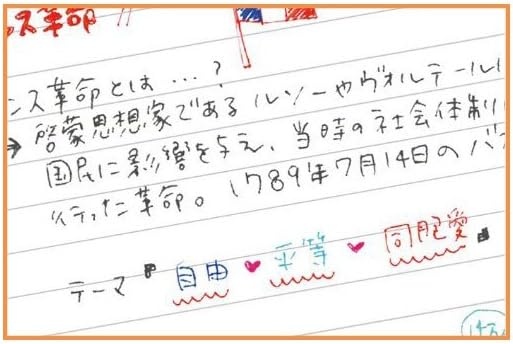 ス革命!!
ンス革命とは…?
→ 啓蒙思想家であるルソーやヴォルテール
国民に影響を与え、当時の社会体制
行った革命。1789年7月14日のバ
テーマ『自由♥平等♥同胞愛』